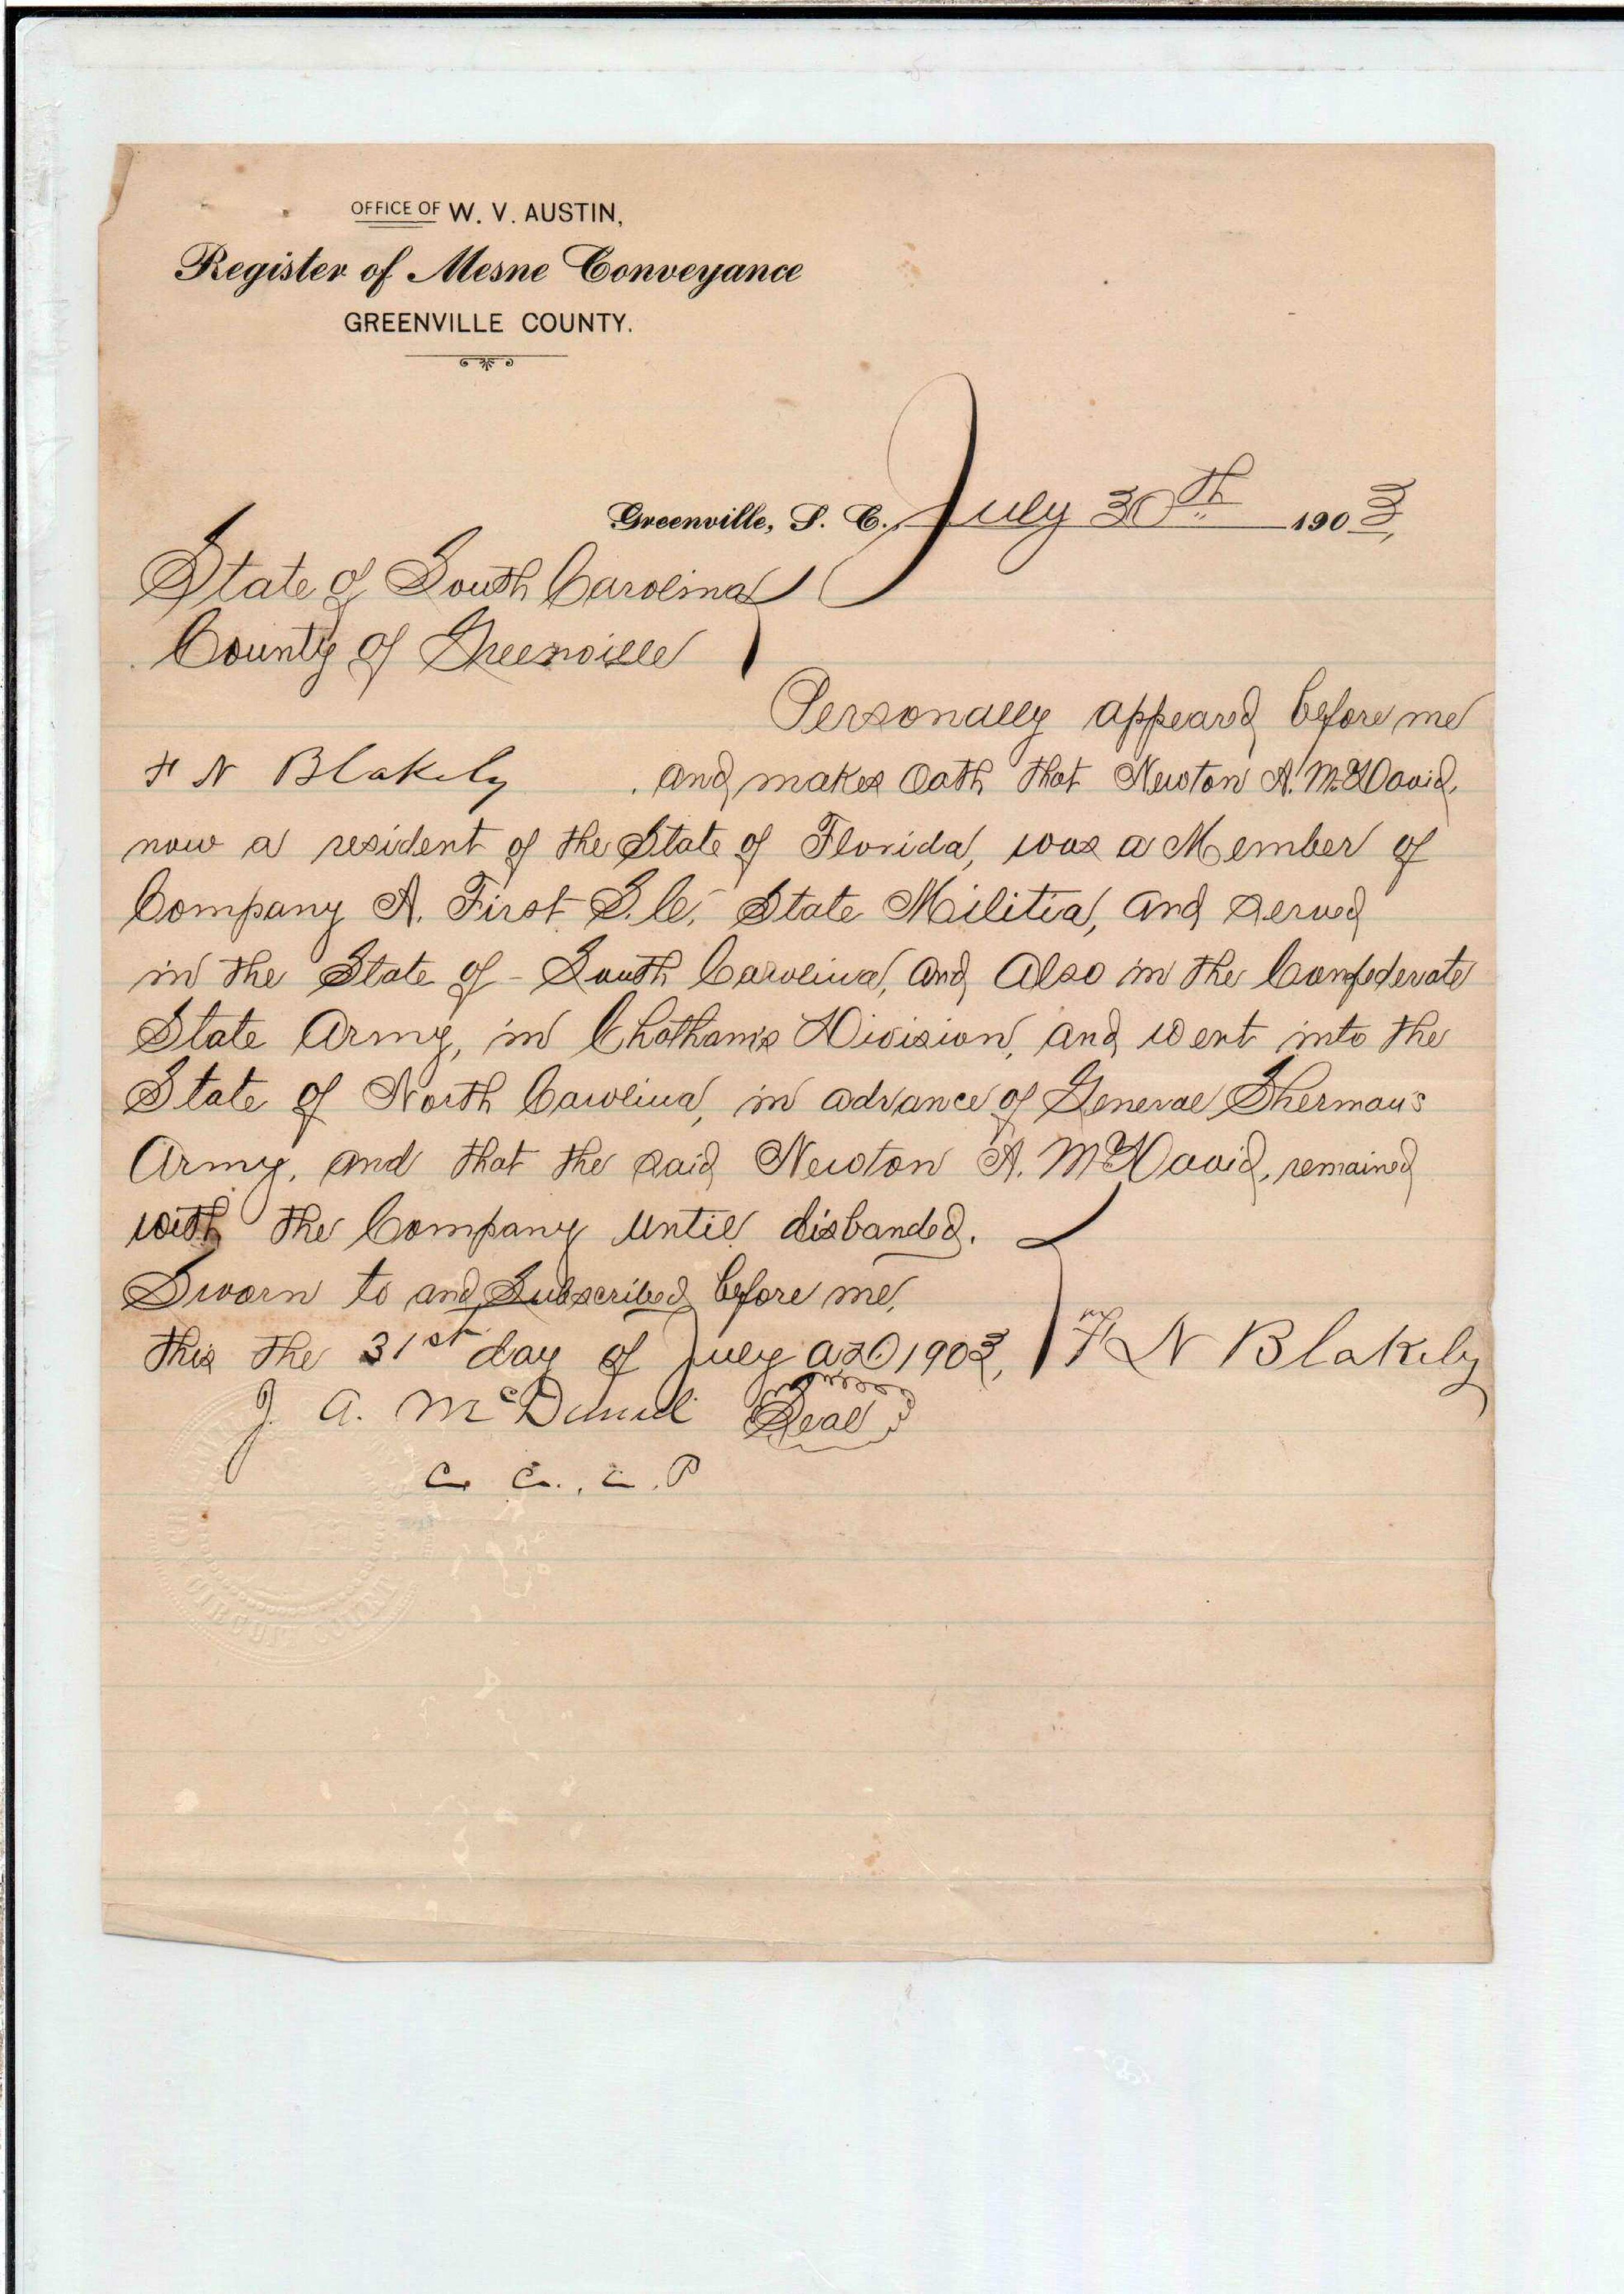 OFFICE OF W. V. AUSTIN,
Register of Mesne Conveyance
GREENVILLE COUNTY.
Greenville, S. C. July 30th 1903,
State of South Carolina
County of Greenville
Personally appeared before me
F N Blakely and makes oath that Newton A. McDavid,
now a resident of the State of Florida, was a Member of
Company A. First S.C. State Militia, and served
in the State of South Carolina, and also in the Confederate
State Army, in Chatham's Division, and went into the
State of North Carolina, in advance of General Sherman's
Army, and that the said Newton A. McDavid, remained
with the Company until disbanded.
Sworn to and Subscribed before me,
this the 31st day of July A.D. 1903, F N Blakely
J. A. McDaniel Seal
C. C., C. P
CIRCUIT COURT